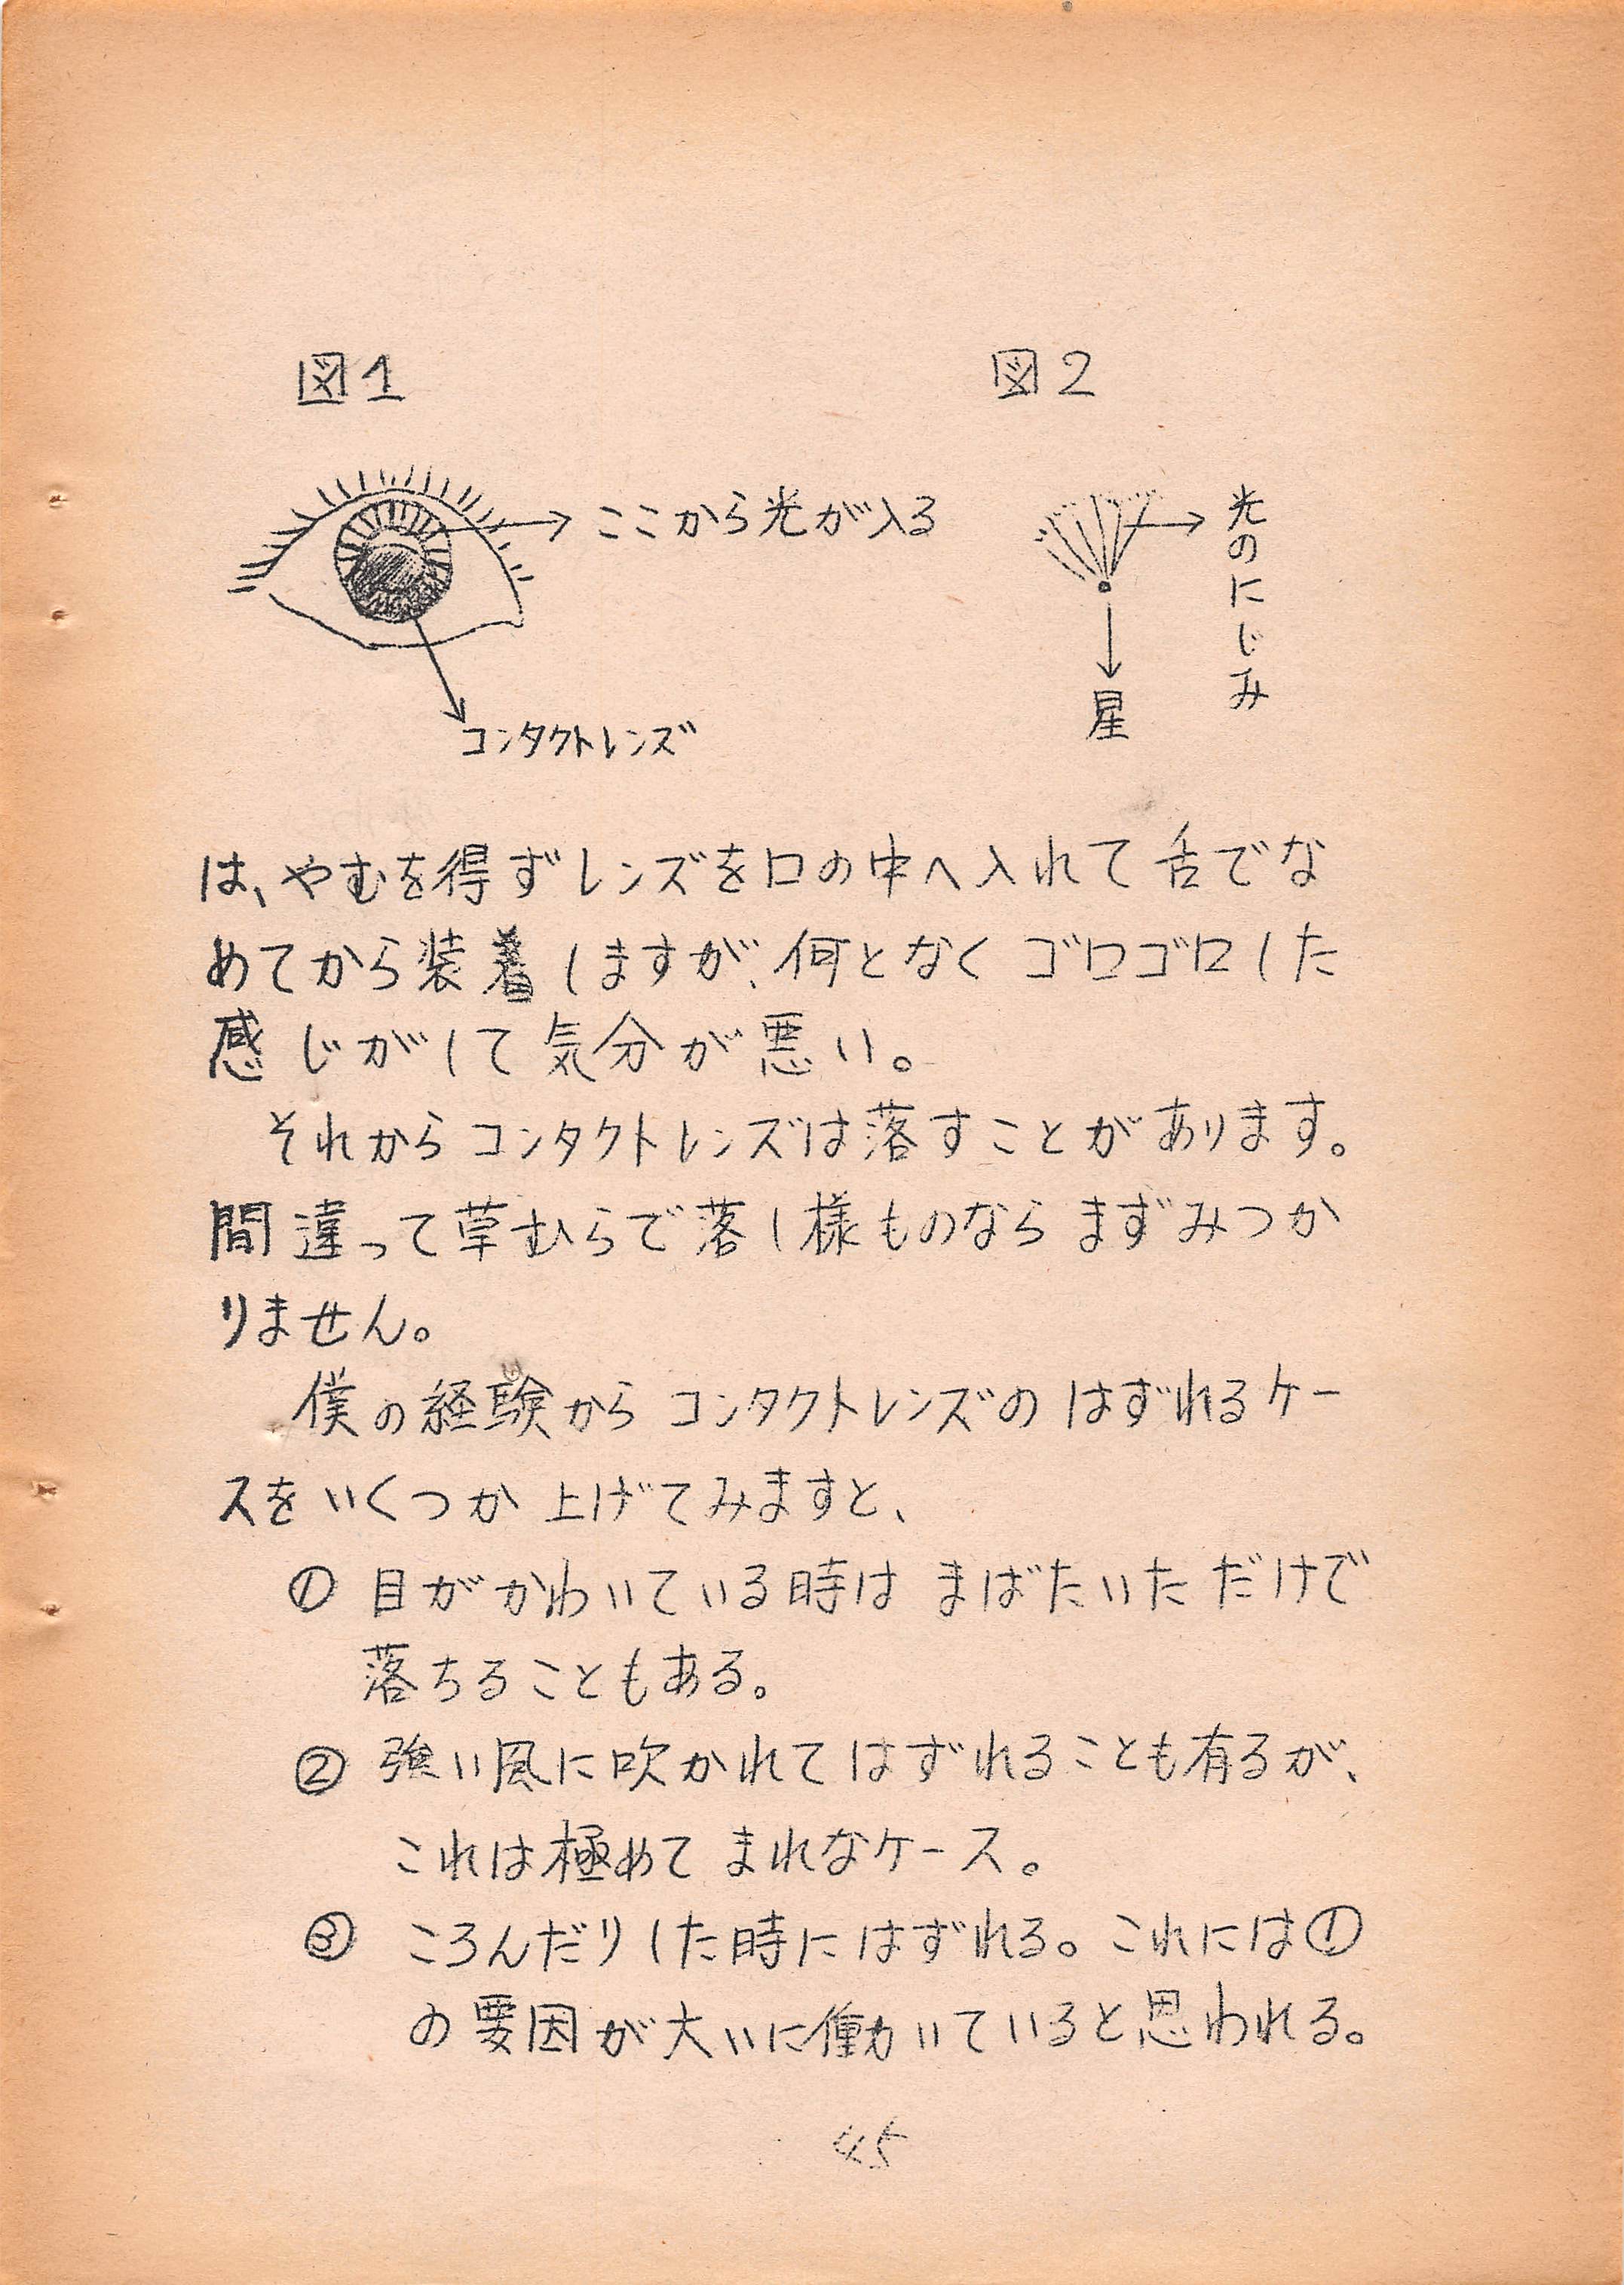 図1
図2
ここから光が入る
コンタクトレンズ
光のにじみ
星
は、やむを得ずレンズを口の中へ入れて舌でな
めてから装着しますが、何となくゴロゴロした
感じがして気分が悪い。
それからコンタクトレンズは落すことがあります。
間違って草むらで落し様ものならまずみつか
りません。
僕の経験からコンタクトレンズのはずれるケー
スをいくつか上げてみますと、
① 目がかわいている時はまばたいただけで
落ちることもある。
② 強い風に吹かれてはずれることも有るが、
これは極めてまれなケース。
③ ころんだりした時にはずれる。これには①
の要因が大いに働いていると思われる。
45